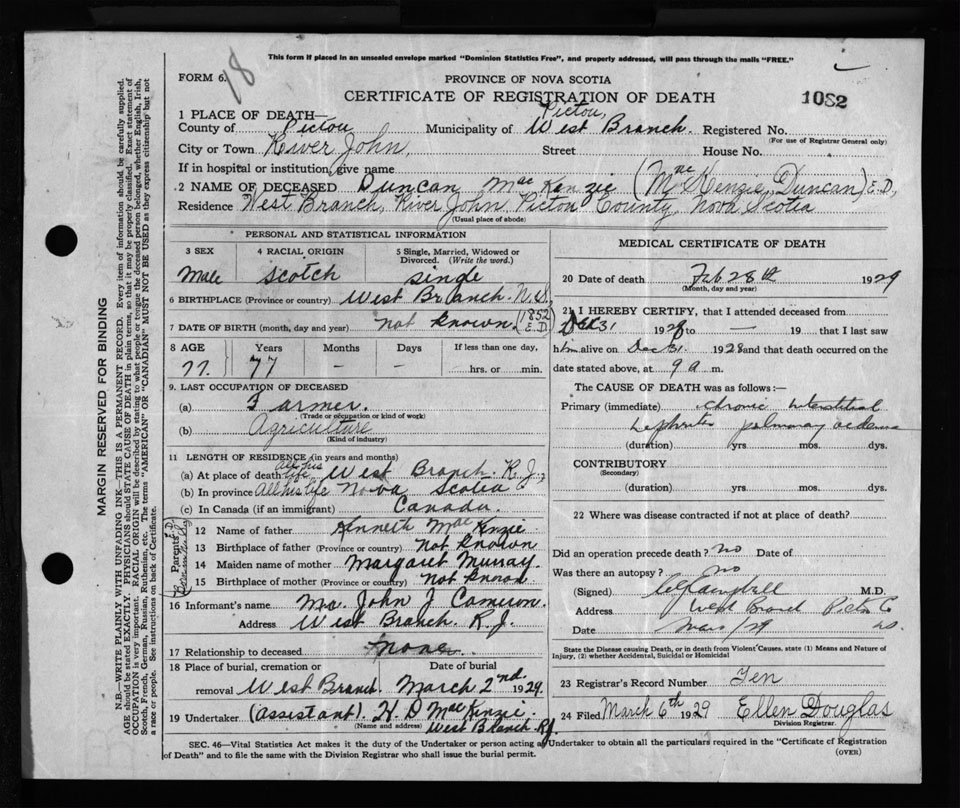 This form if placed in an unsealed envelope marked "Dominion Statistics Free", and properly addressed, will pass through the mails "FREE."
FORM 6.
78
PROVINCE OF NOVA SCOTIA
CERTIFICATE OF REGISTRATION OF DEATH
1082
1 PLACE OF DEATH—
Pictou
County of Pictou Municipality of West Branch. Registered No.
(For use of Registrar General only)
City or Town River John, Street House No.
If in hospital or institution, give name
2 NAME OF DECEASED Duncan MacKenzie (MacKenzie, Duncan) E.D.
Residence West Branch, River John, Pictou County, Nova Scotia
(Usual place of abode)
PERSONAL AND STATISTICAL INFORMATION
3 SEX 4 RACIAL ORIGIN 5 Single, Married, Widowed or Divorced. (Write the word.)
Male Scotch Single
6 BIRTHPLACE (Province or country) West Branch. N.S.
7 DATE OF BIRTH (month, day and year) not known. (1852 E.D.)
8 AGE Years Months Days If less than one day,
77. 77 – – hrs. or min.
9. LAST OCCUPATION OF DECEASED
(a) Farmer.
(Trade or occupation or kind of work)
(b) Agriculture
(Kind of industry)
11 LENGTH OF RESIDENCE (in years and months)
(a) At place of death All his life, West Branch. R.J.,
(b) In province All his life Nova Scotia
(c) In Canada (if an immigrant) Canada.
Parents
12 Name of father Kenneth MacKenzie
13 Birthplace of father (Province or country) Not known
14 Maiden name of mother Margaret Murray.
15 Birthplace of mother (Province or country) Not known
16 Informant's name Mr. John J Cameron.
Address West Branch. R.J.
17 Relationship to deceased none.
18 Place of burial, cremation or Date of burial
removal West Branch. March 2nd. 1929.
19 Undertaker (assistant). H. D MacKenzie.
(Name and address) West Branch. RJ.
MEDICAL CERTIFICATE OF DEATH
20 Date of death Feb 28th 1929
(Month, day and year)
21 I HEREBY CERTIFY, that I attended deceased from
Dec 31 1928 to — 19 that I last saw
him alive on Dec 31. 1928 and that death occurred on the
date stated above, at 9 a m.
The CAUSE OF DEATH was as follows:—
Primary (immediate) chronic Interstitial
Nephritis pulmonary oedema
(duration) yrs. mos. dys.
CONTRIBUTORY
(Secondary)
(duration) yrs. mos. dys.
22 Where was disease contracted if not at place of death?
Did an operation precede death? no Date of
Was there an autopsy? no
(Signed) Campbell M.D.
Address West Branch Pictou Co
Date Mar 1/29 N.S.
State the Disease causing Death, or in death from Violent Causes, state (1) Means and Nature of
Injury, (2) whether Accidental, Suicidal or Homicidal
23 Registrar's Record Number Ten
24 Filed March 6th 1929 Ellen Douglas
Division Registrar.
SEC. 46—Vital Statistics Act makes it the duty of the Undertaker or person acting as Undertaker to obtain all the particulars required in the "Certificate of Registration
of Death" and to file the same with the Division Registrar who shall issue the burial permit. (OVER)
MARGIN RESERVED FOR BINDING
N.B.—WRITE PLAINLY WITH UNFADING INK—THIS IS A PERMANENT RECORD. Every item of information should be carefully supplied.
AGE should be stated EXACTLY. PHYSICIANS should STATE CAUSE OF DEATH in plain terms, so that it may be properly classified. Exact statement of
OCCUPATION is very important. RACIAL ORIGIN will be described by stating to what people or tongue the deceased person belonged, whether English, Irish,
Scotch, French, German, Russian, Ruthenian, etc. The terms "AMERICAN" OR "CANADIAN" MUST NOT BE USED as they express citizenship but not
a race or people. See instructions on back of Certificate.